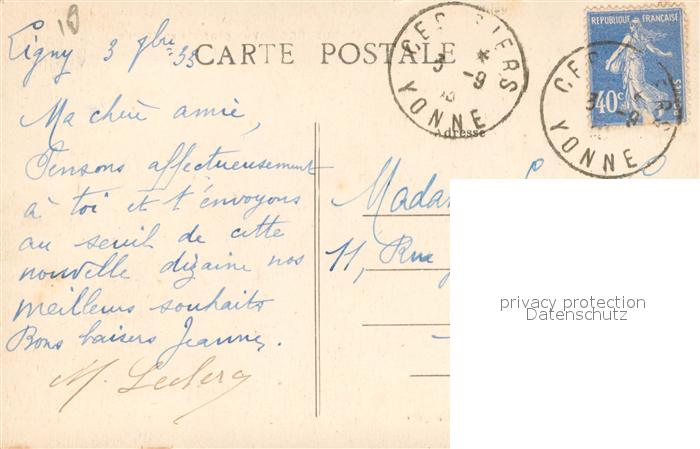 Ligny 3 7bre 33
CARTE POSTALE
Adresse
RÉPUBLIQUE FRANÇAISE
40c
POSTES
YONNE
3 -9
YONNE
3 -9
Ma chère amie,
Pensons affectueusement
à toi et t'envoyons
au seuil de cette
nouvelle dizaine nos
meilleurs souhaits
Bons baisers Jeanne.
M. Leclerq
Madam
11, Rue
privacy protection
Datenschutz